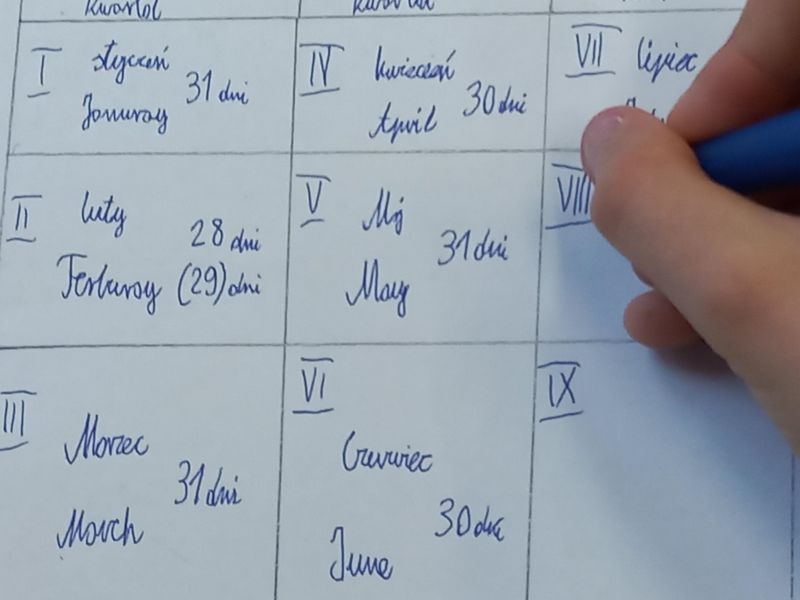 kwartał
kwartał
I styczeń
31 dni
Januray
IV kwiecień
30 dni
April
VII lipiec
II luty
28 dni
Ferburay (29) dni
V Mäj
31 dni
May
VIII
III Marzec
31 dni
March
VI
Czerwiec
30 dni
June
IX